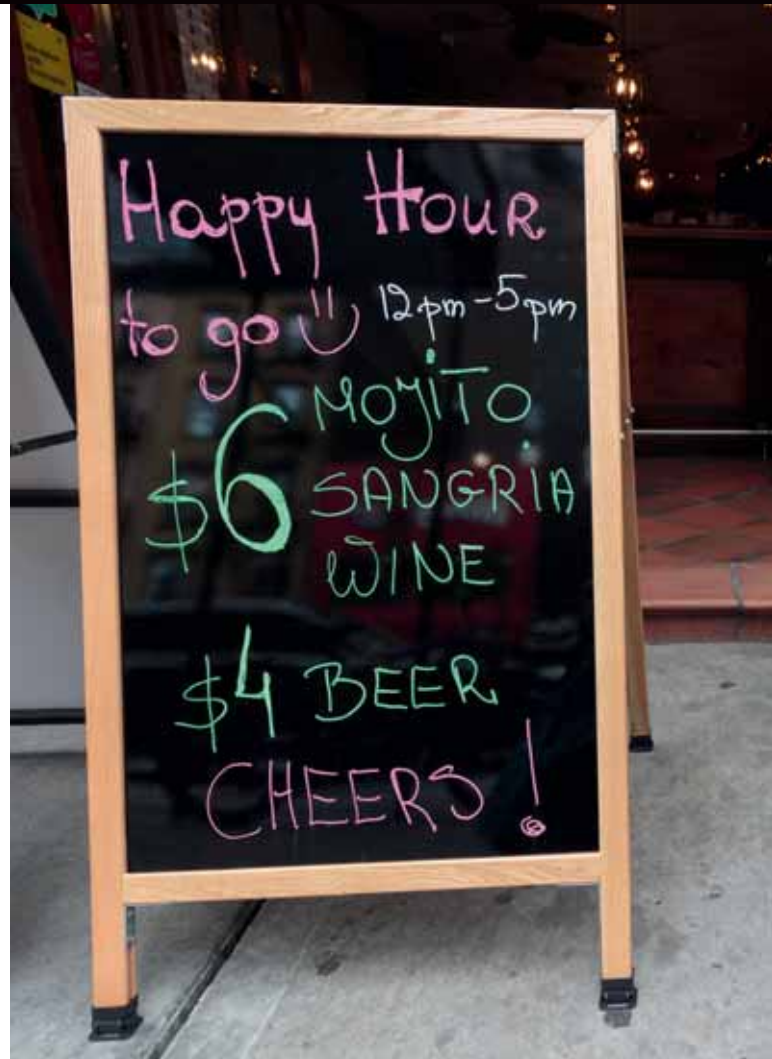 Happy Hour
to go 12pm-5pm
$6 MOJITO
SANGRIA
WINE
$4 BEER
CHEERS!